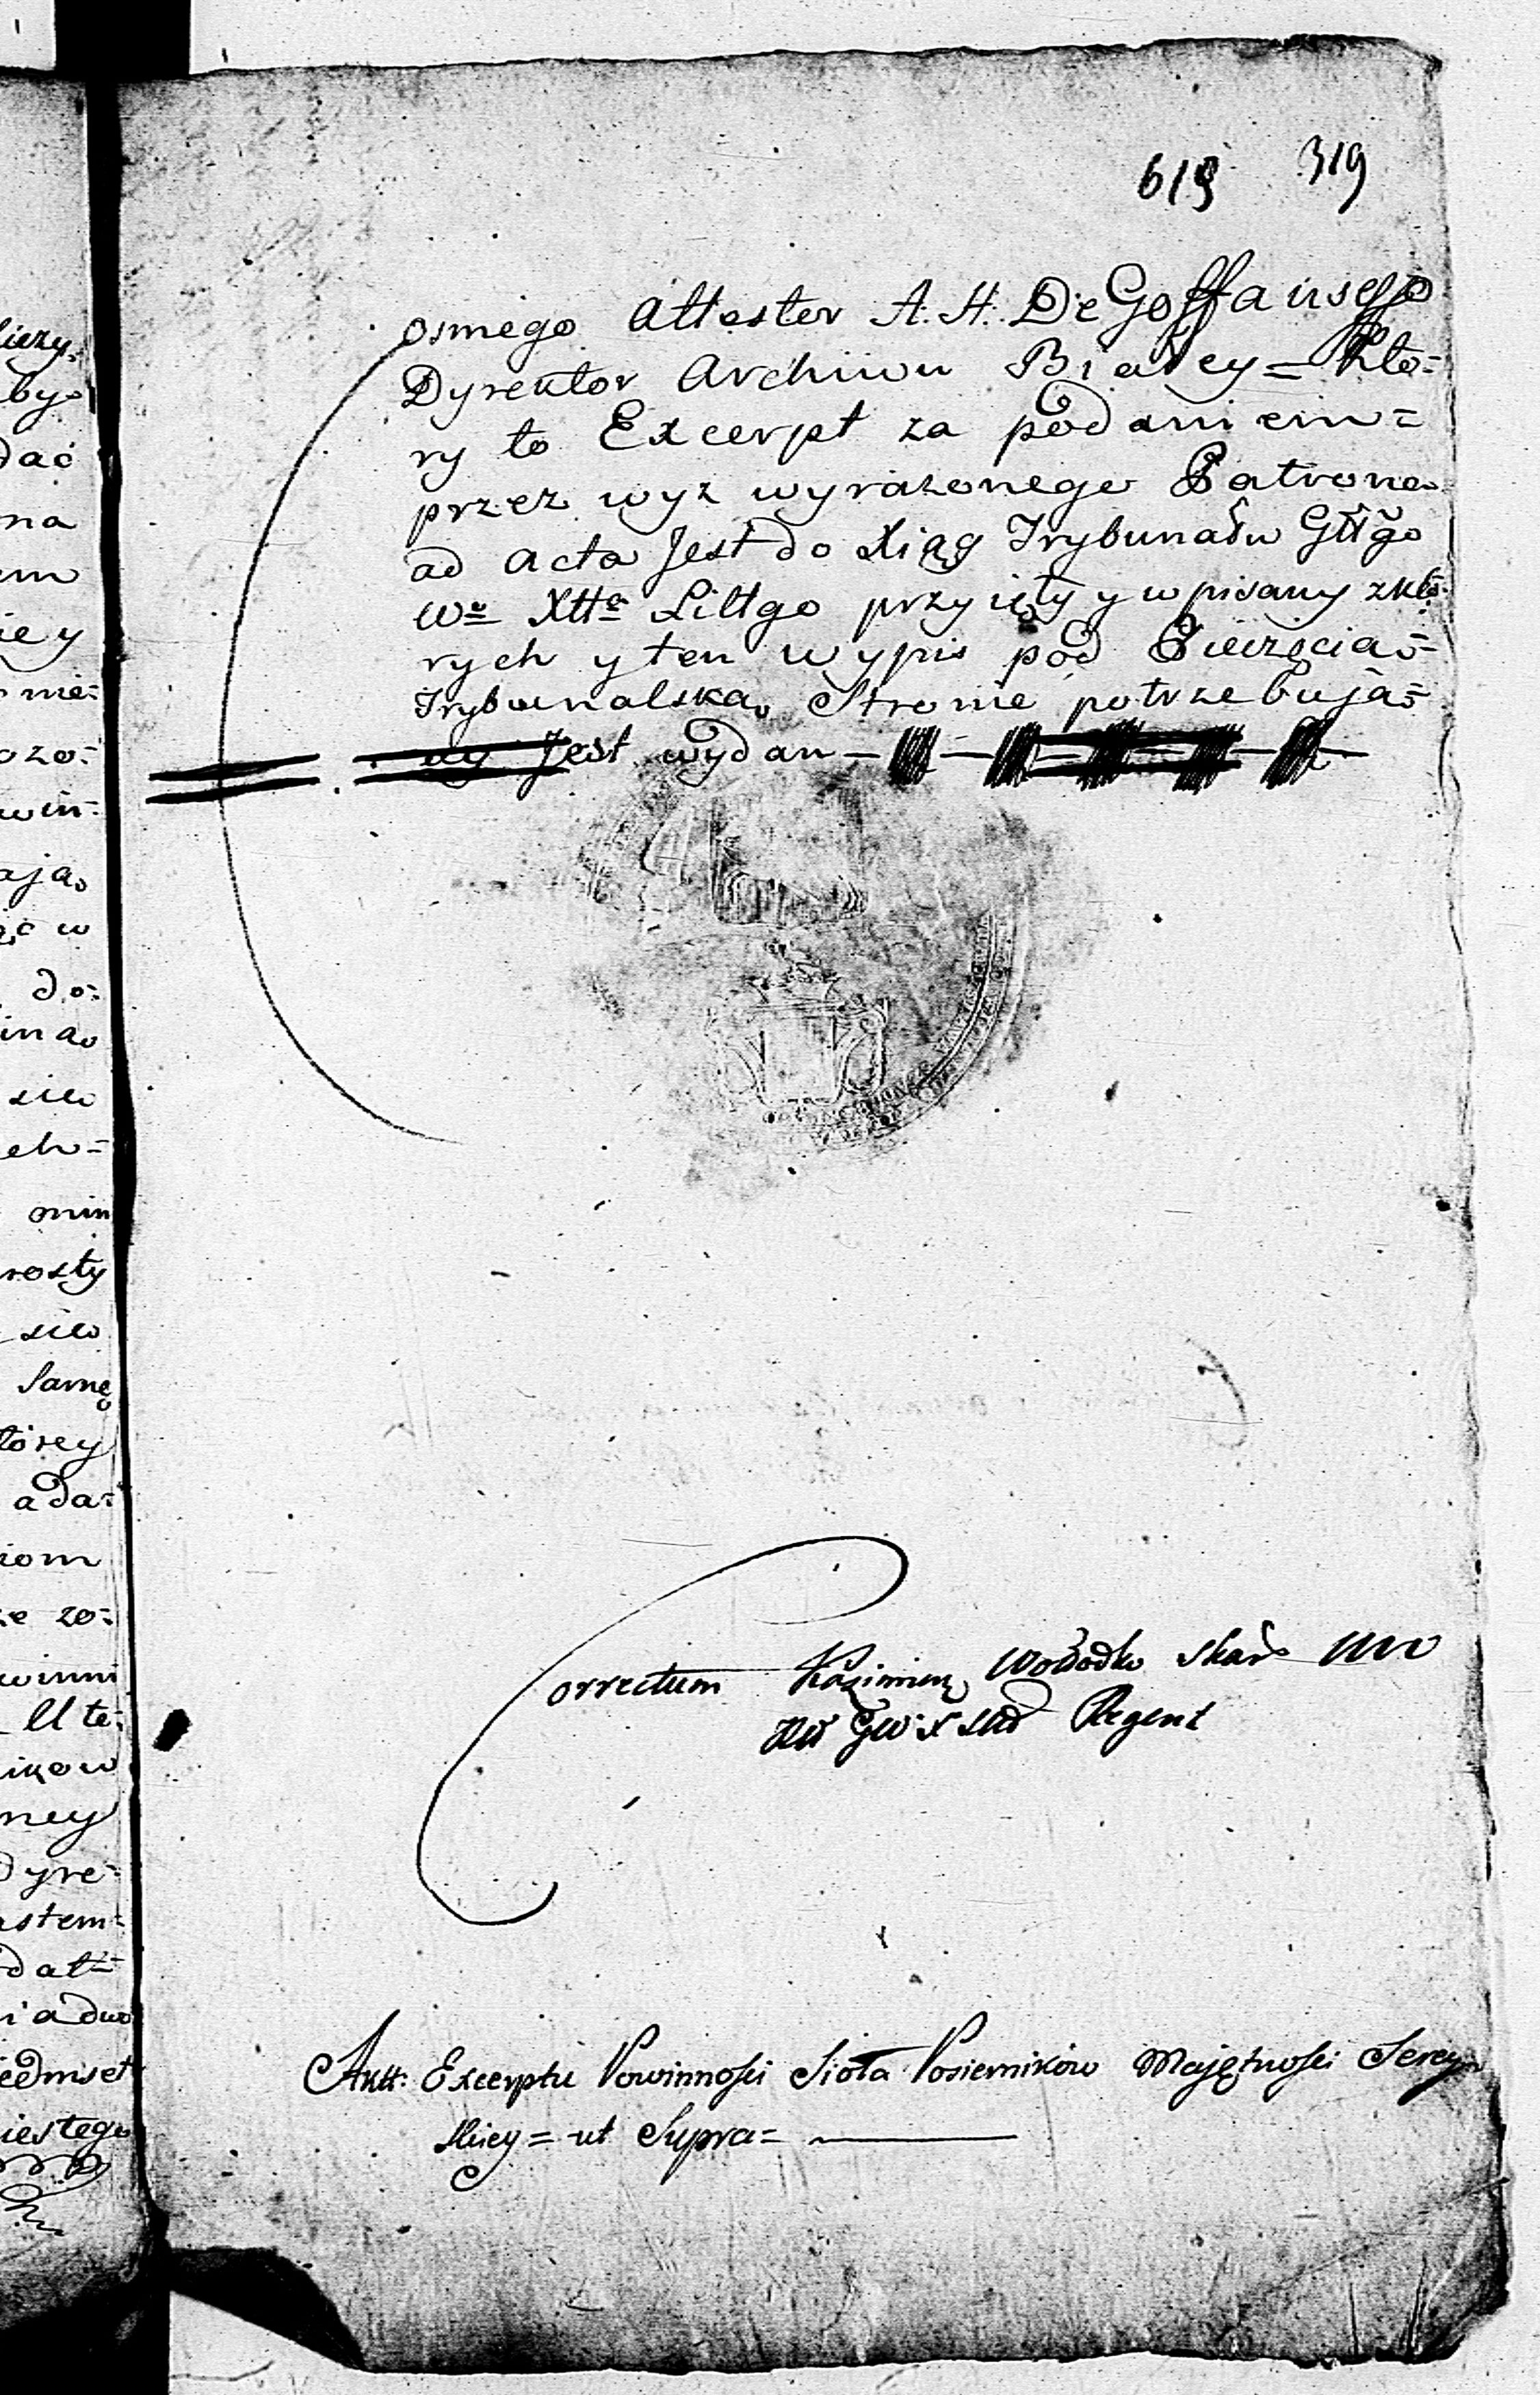 618 319
osmego Attestor A. H. De Goffaŭx
Dyrektor Archiwu Białey = Kto=
ry to Excerpt za podaniem=
przez wyz wyrazonego Patrona
ad Acta Jest do Xiąg Trybunału Głłgo
Wᵒ Xttᵃ Littgo przyięty y wpisany z kto=
rych y ten wypis pod Pieczęcią=
Trybunalską Stronie potrzebują=
cy Jest wydan
Correctum Kazimierz Wołodko Skar
Regent
Aktt: Excerptu Powinnośći Sioła Posiernikow Majętnośći Serey=
skiey = ut Supra =
liczy
by
dać
na
em
iey
mie=
ozo=
win=
ają
w
do=
iną
sie
ch=
min
rosty
sie
Samę
tórey
ada=
iom
ze zo=
winni
U te=
ikow
ney
dyre=
astem=
dat=
i a dwo
iedmset
iestego